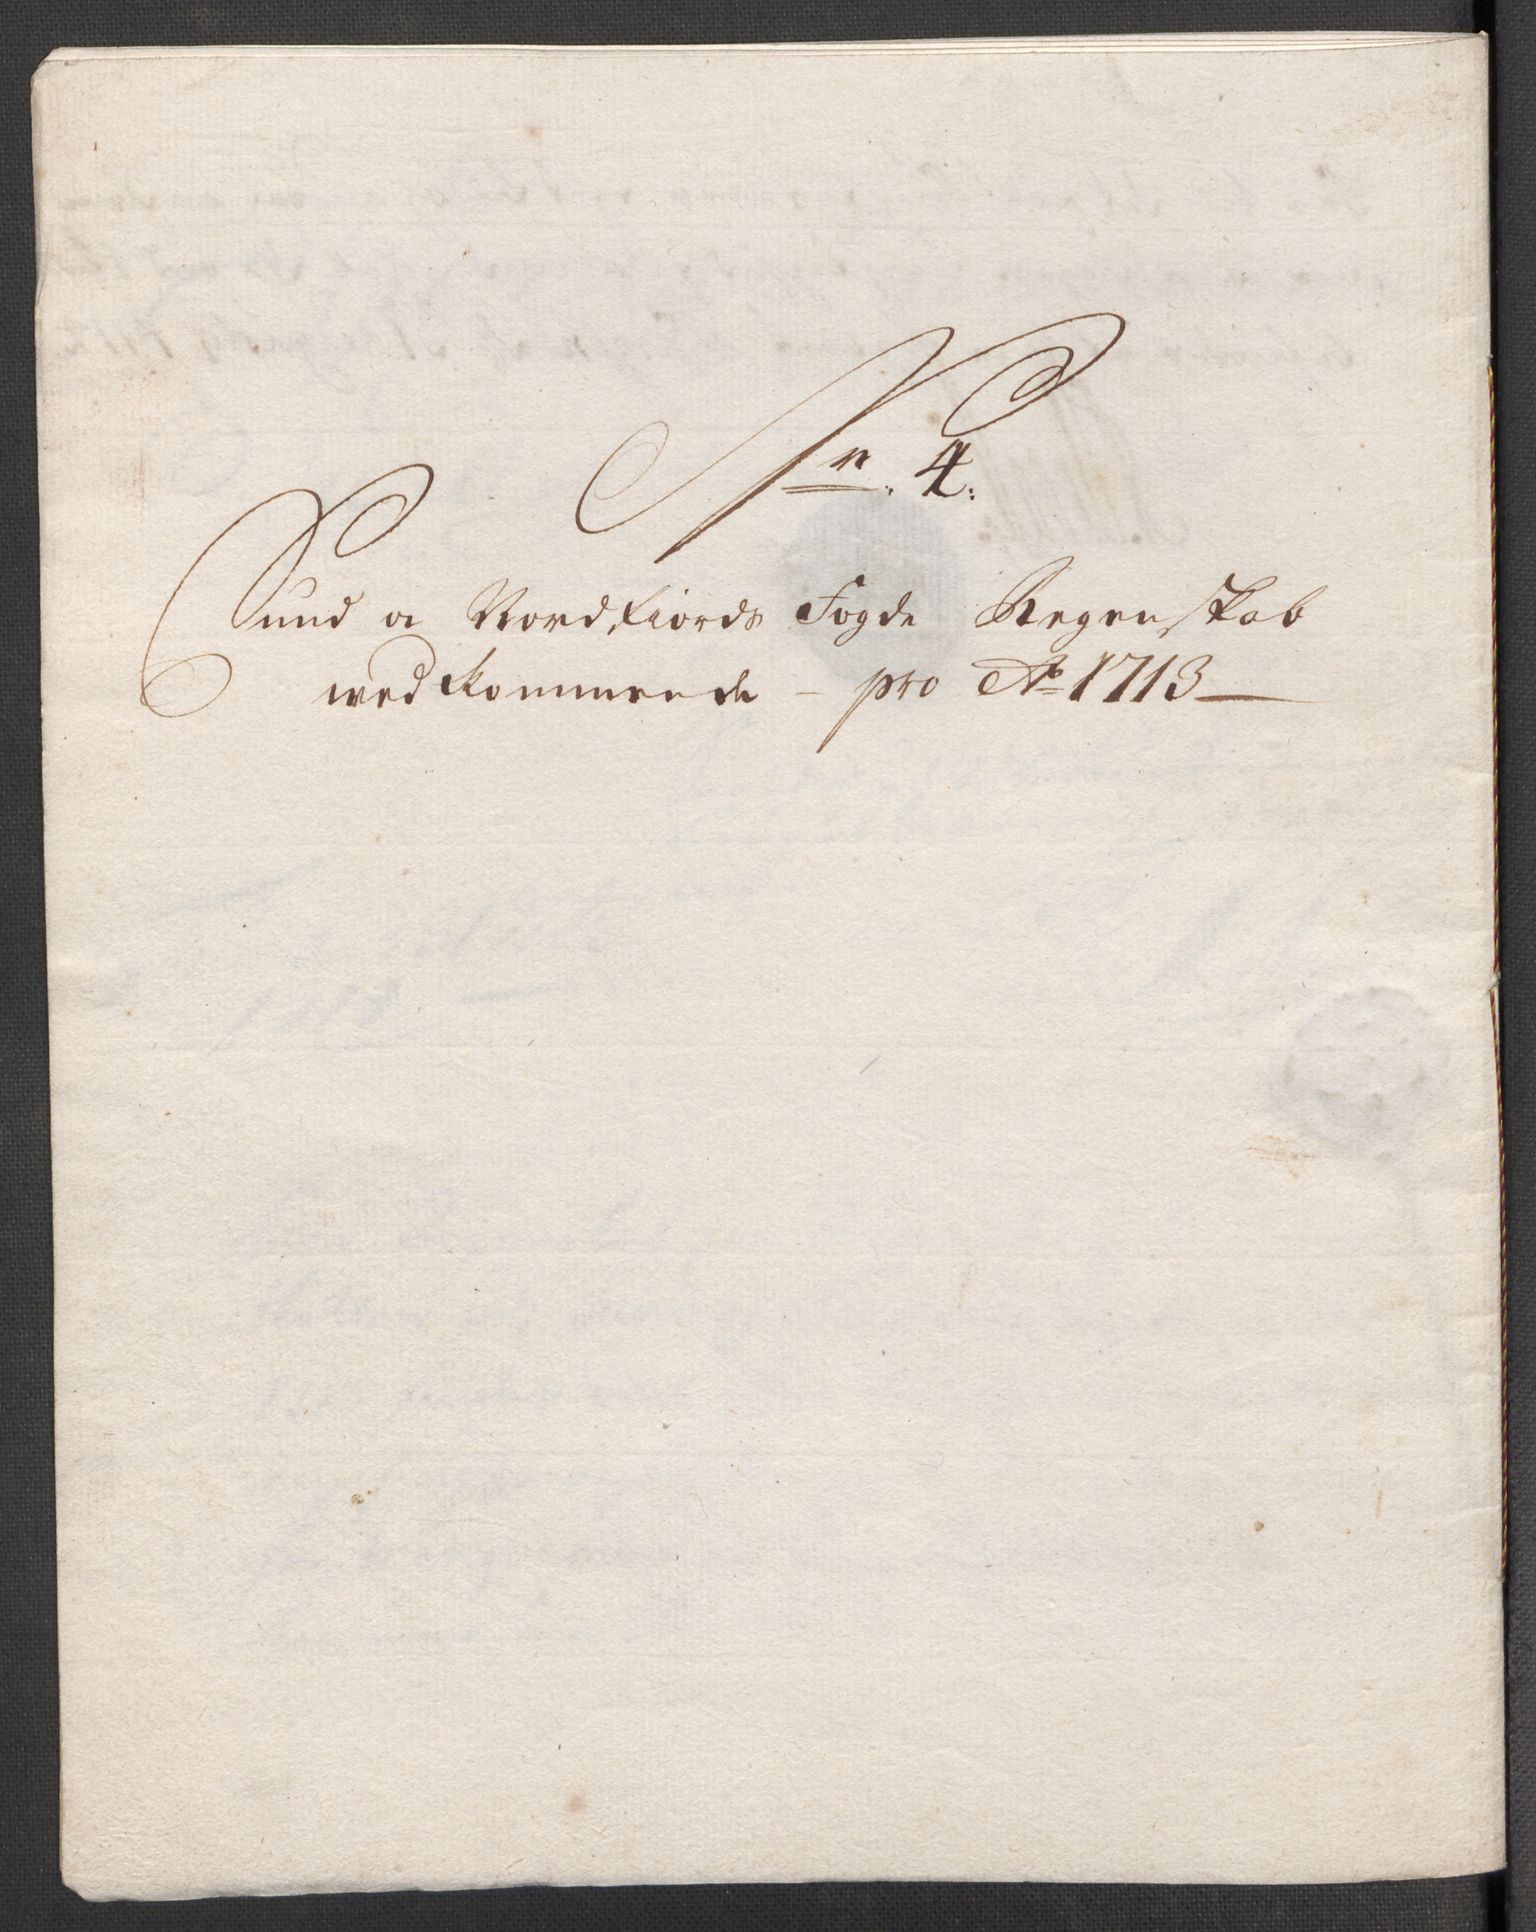 Nr. 4.
Sund o Nordfiords Fogde Regenskab
wedkommende – pro Ao 1713